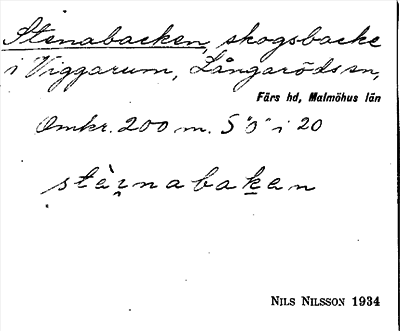 Stenabacken, skogsbacke
i Viggarum, Långarödssn,
Färs hd, Malmöhus län
Omkr. 200 m. S "O" i 20
stèṇnabaḵen
NILS NILSSON 1934